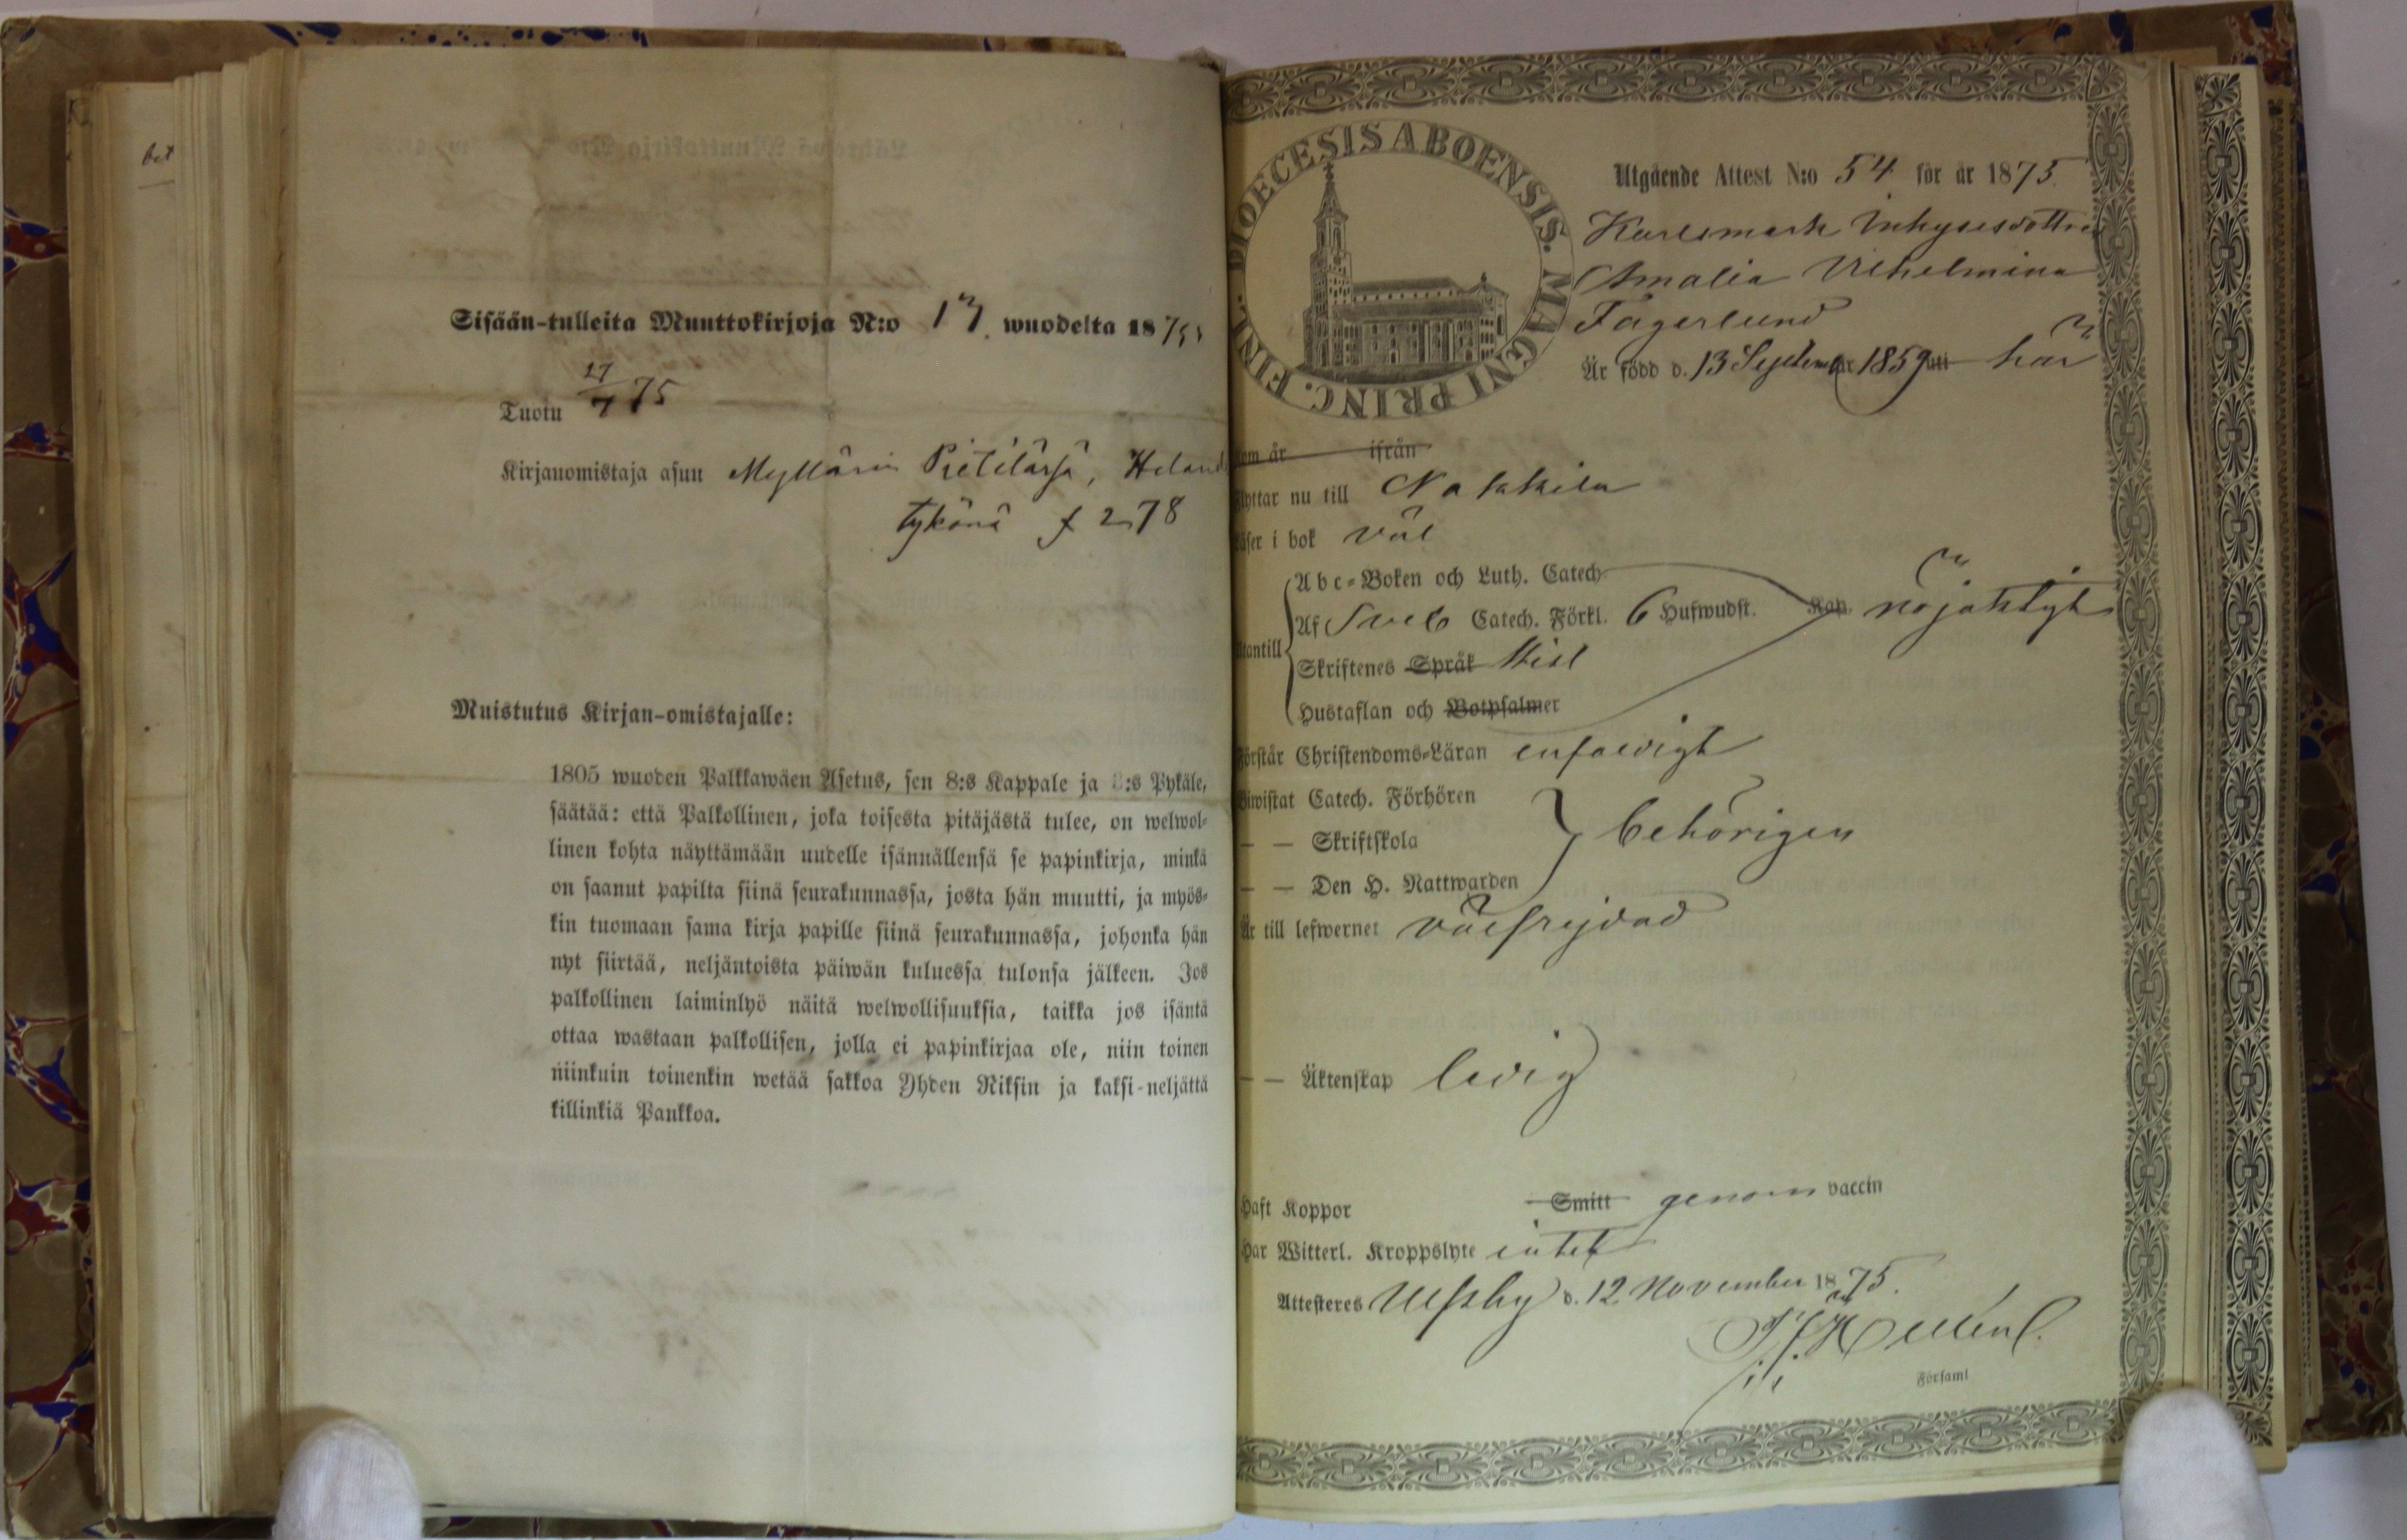 bet
Sisään-tulleita Muuttokirjoja N:o 17. wuodelta 1875
Tuotu 27/7 75
Kirjanomistaja asuu Myllärin Pietilässä, Heland
tykönä f 278
Muistutus Kirjan-omistajalle:
1805 wuoden Palkkawäen Asetus, sen 8:s Kappale ja 3:s Pykäle,
säätää: että Palkollinen, joka toisesta pitäjästä tulee, on welwol-
linen kohta näyttämään uudelle isännällensä se papinkirja, minkä
on saanut papilta siinä seurakunnassa, josta hän muutti, ja myös-
kin tuomaan sama kirja papille siinä seurakunnassa, johonka hän
nyt siirtää, neljäntoista päiwän kuluessa tulonsa jälkeen. Jos
palkollinen laiminlyö näitä welwollisuuksia, taikka jos isäntä
ottaa wastaan palkollisen, jolla ei papinkirjaa ole, niin toinen
niinkuin toinenkin wetää sakkoa Yhden Riksin ja kaksi-neljättä
killinkiä Pankkoa.
DIOECESIS ABOENSIS. MAGNI PRINC. FINL.
Utgående Attest N:o 54 för år 1875.
Karlsmark Inhysesdottren
Amalia Vilhelmina
Fagerlund
Är född d. 13 September 1859 uti här
om år ifrån
Flyttar nu till Nakkila
Läser i bok väl
Abc-Boken och Luth. Catech.
Utantill Af Sveb Catech. Förkl. 6 Hufwudst. Kap. nöjaktigt
Skriftenes Språk
Hustaflan och Botpsalmer
Förstår Christendoms-Läran enfaldigt
Biwistat Catech. Förhören
— — Skriftskola behörigen
— — Den H. Nattwarden
Är till lefwernet välfrejdad
— — Äktenskap ledig
Haft Koppor Smitt genom vaccin
Har Witterl. Kroppslyte intet
Attesteres Ulfsby d. 12 November 1875.
Församl